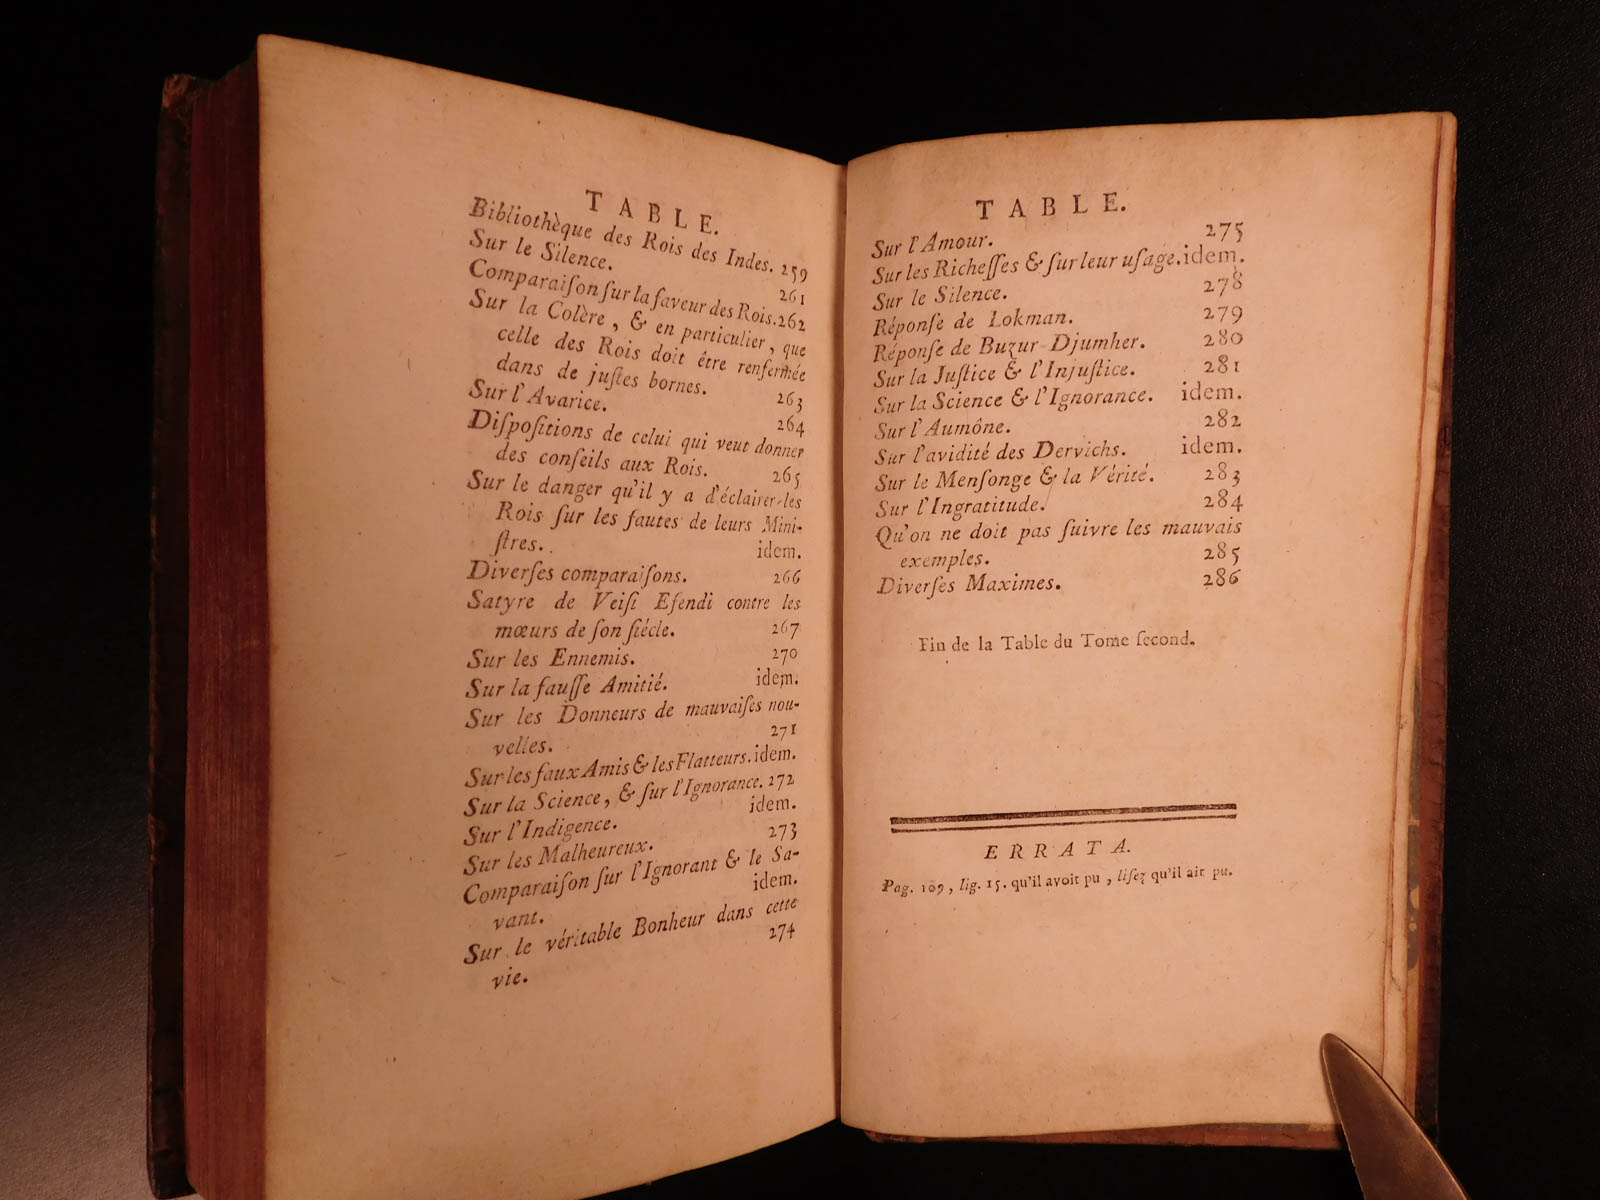 TABLE.
Bibliothèque des Rois des Indes. 259
Sur le Silence. 261
Comparaiſon ſur la faveur des Rois. 262
Sur la Colère, & en particulier, que
celle des Rois doit être renfermée
dans de juſtes bornes. 263
Sur l'Avarice. 264
Diſpoſitions de celui qui veut donner
des conſeils aux Rois. 265
Sur le danger qu'il y a d'éclairer les
Rois ſur les fautes de leurs Mini-
ſtres. idem.
Diverſes comparaiſons. 266
Satyre de Veiſi Efendi contre les
mœurs de ſon ſiécle. 267
Sur les Ennemis. 270
Sur la fauſſe Amitié. idem.
Sur les Donneurs de mauvaiſes nou-
velles. 271
Sur les faux Amis & les Flatteurs. idem.
Sur la Science, & ſur l'Ignorance. 272
Sur l'Indigence. idem.
Sur les Malheureux. 273
Comparaiſon ſur l'Ignorant & le Sa-
vant. idem.
Sur le véritable Bonheur dans cette
vie. 274
TABLE.
Sur l'Amour. 275
Sur les Richeſſes & ſur leur uſage. idem.
Sur le Silence. 278
Réponſe de Lokman. 279
Réponſe de Buzur Djumher. 280
Sur la Juſtice & l'Injuſtice. 281
Sur la Science & l'Ignorance. idem.
Sur l'Aumône. 282
Sur l'avidité des Dervichs. idem.
Sur le Menſonge & la Vérité. 283
Sur l'Ingratitude. 284
Qu'on ne doit pas ſuivre les mauvais
exemples. 285
Diverſes Maximes. 286
Fin de la Table du Tome ſecond.
ERRATA.
Pag. 109, lig. 15. qu'il avoit pu, liſez qu'il ait pu.